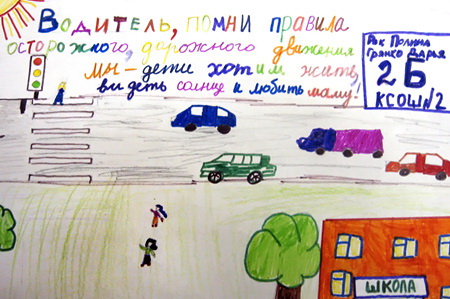 Водитель, помни правила
осторожного, дорожного движения
Мы – дети хотим жить,
видеть солнце и любить маму!
Рак Полина
Гранко Дарья
2Б
КСОШ№2
ШКОЛА